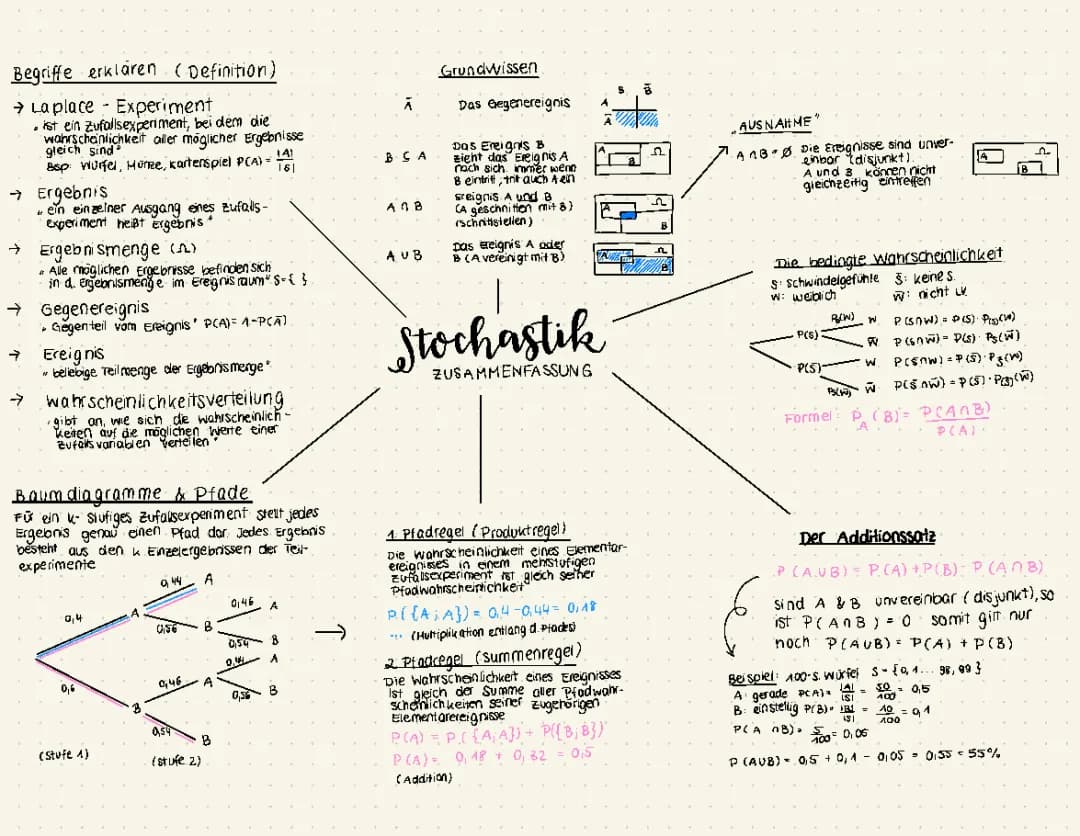 Begriffe erklären (Definition)
→ Laplace - Experiment
„ist ein Zufallsexperiment, bei dem die
wahrscheinlichkeit aller möglicher Ergebnisse
gleich sind"
Bsp. Würfel, Münze, Kartenspiel P(A) = |A| / |S|
→ Ergebnis
„ein einzelner Ausgang eines Zufalls-
experiment heißt Ergebnis"
→ Ergebnismenge (Ω)
„Alle möglichen Ergebnisse befinden sich
in d. Ergebnismenge im Ereignisraum" S={ }
→ Gegenereignis
„Gegenteil vom Ereignis" P(A) = 1-P(Ā)
→ Ereignis
„beliebige Teilmenge der Ergebnismenge"
→ Wahrscheinlichkeitsverteilung
„gibt an, wie sich die wahrscheinlich-
keiten auf die möglichen Werte einer
Zufallsvariablen verteilen"
Grundwissen
Ā Das Gegenereignis
S B̄
A
Ā
B ⊆ A Das Ereignis B
zieht das Ereignis A
nach sich. immer wenn
B eintritt, tritt auch A ein
A B Ω
A ∩ B Ereignis A und B
(A geschnitten mit B)
(schnittstellen)
A Ω B
A ∪ B Das Ereignis A oder
B (A vereinigt mit B)
A Ω B
„AUSNAHME"
A ∩ B = Ø Die Ereignisse sind unver-
einbar (disjunkt).
A und B können nicht
gleichzeitig eintreffen
A Ω B
Die bedingte Wahrscheinlichkeit
S: Schwindelgefühle S̄: keine S.
W: weiblich W̄: nicht W
P(S) Ps(W) W P(S∩W) = P(S) · P(s)(W)
W̄ P(S∩W̄) = P(S) · Ps(W̄)
P(S̄) W P(S̄∩W) = P(S̄) · Ps̄(W)
Ps̄(W̄) W̄ P(S̄∩W̄) = P(S̄) · P(s̄)(W̄)
Formel: P_A(B) = P(A∩B) / P(A)
Stochastik
ZUSAMMENFASSUNG
Baumdiagramme & Pfade
Für ein k-stufiges Zufallsexperiment stellt jedes
Ergebnis genau einen Pfad dar. Jedes Ergebnis
besteht aus den k Einzelergebnissen der Teil-
experimente
0,44 A
0,4 A 0,46 A
0,56 B
0,54 B
0,44 A
0,6 0,46 A
0,56 B
B
0,54 B
(Stufe 1) (Stufe 2)
→
1. Pfadregel (Produktregel)
Die Wahrscheinlichkeit eines Elementar-
ereignisses in einem mehrstufigen
Zufallsexperiment ist gleich seiner
Pfadwahrscheinlichkeit
P({A;A}) = 0,4 · 0,44 = 0,18
... (Multiplikation entlang d. Pfades)
2. Pfadregel (Summenregel)
Die Wahrscheinlichkeit eines Ereignisses
ist gleich der Summe aller Pfadwahr-
scheinlichkeiten seiner zugehörigen
Elementarereignisse
P(A) = P({A;A}) + P({B;B})
P(A) = 0,18 + 0,32 = 0,5
(Addition)
Der Additionssatz
P(A∪B) = P(A) + P(B) - P(A∩B)
sind A & B unvereinbar (disjunkt), so
ist P(A∩B) = 0 somit gilt nur
noch P(A∪B) = P(A) + P(B)
Beispiel: 100-S. Würfel S = {0,1 ... 98, 99}
A: gerade P(A) = |A| / |S| = 50 / 100 = 0,5
B: einstellig P(B) = |B| / |S| = 10 / 100 = 0,1
P(A ∩B) = 5 / 100 = 0,05
P(A∪B) = 0,5 + 0,1 - 0,05 = 0,55 = 55%